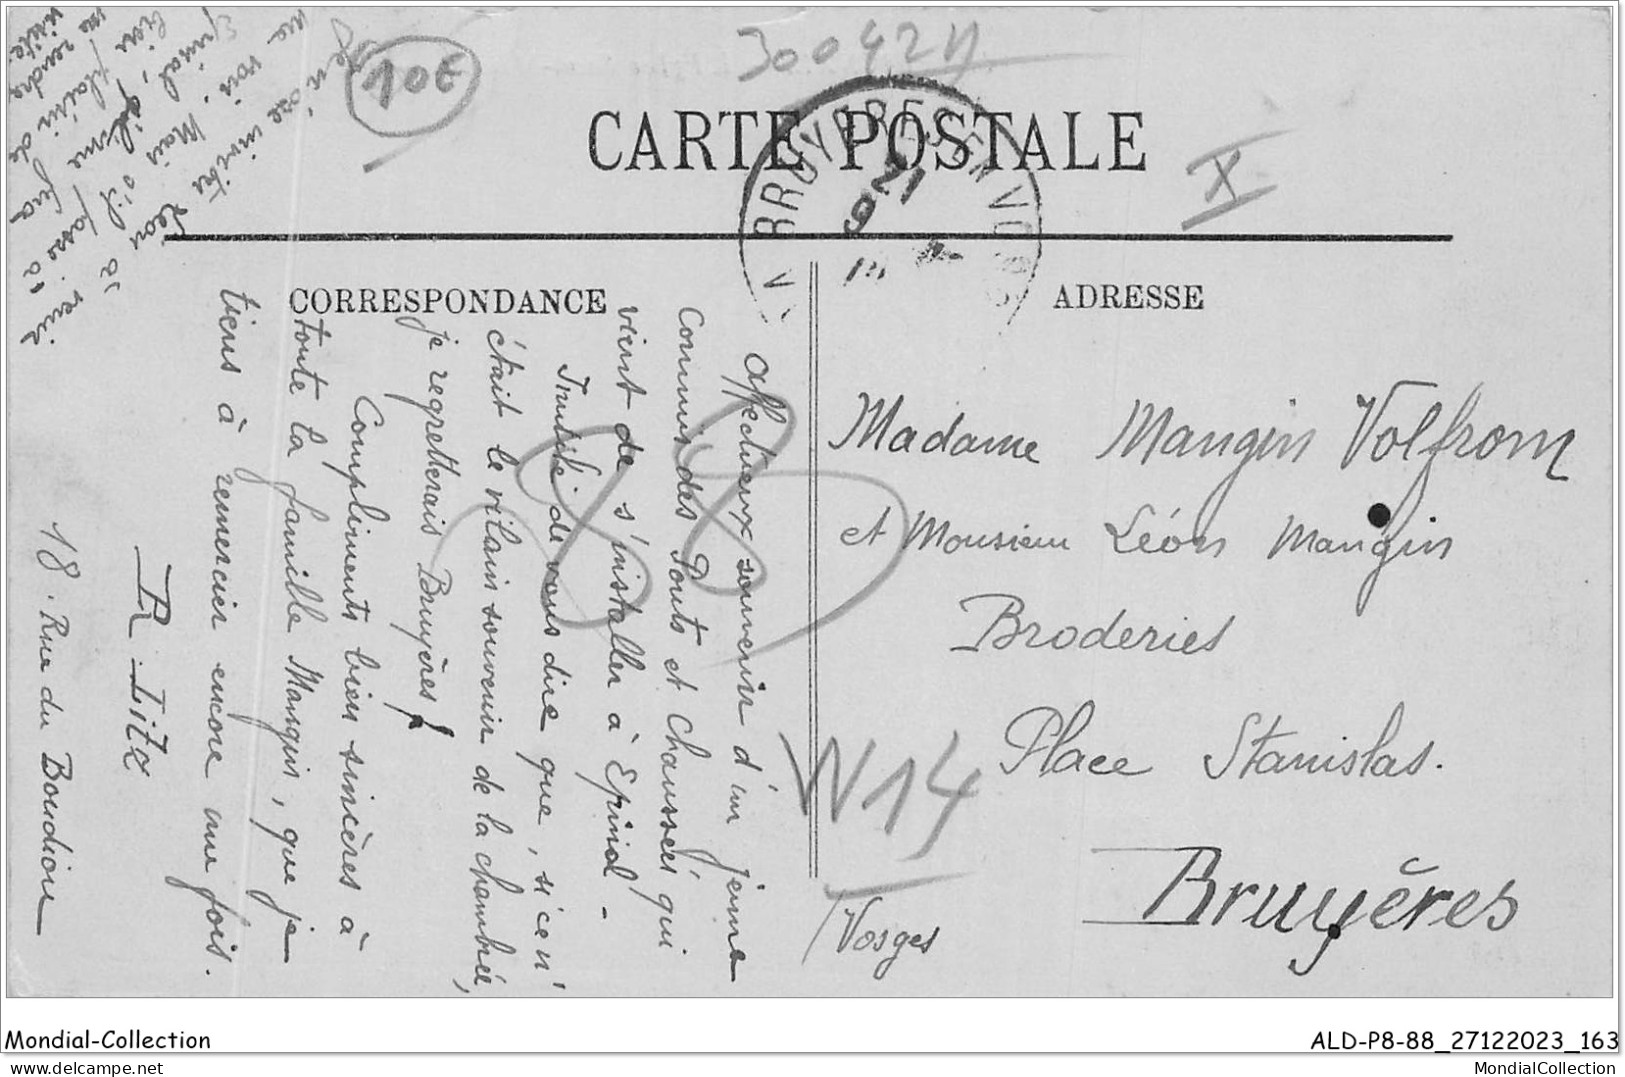 30042N
10E
CARTE POSTALE
BRUYERES EN VOSGES
21
9
X
CORRESPONDANCE
ADRESSE
Affectueux souvenir d'un jeune
Commis des Ponts et Chaussées qui
vient de s'installer à Epinal -
Inutile de vous dire que, si ce n'
était le vilain souvenir de la chambrée,
je regretterais Bruyères!
Compliments bien sincères à
toute la famille Mangin, que je
tiens à remercier encore une fois.
18 Rue du Boudiou
Je n'ose inviter Léon à
me voir. Mais s'il passe à
Epinal, il me fera
bien plaisir de
me rendre
visite.
Madame Mangin Volfrom
et Monsieur Léon Mangin
Broderies
Place Stanislas.
Bruyères
Vosges
88
N14
Mondial-Collection
ALD-P8-88_27122023_163
delcampe.net
MondialCollection